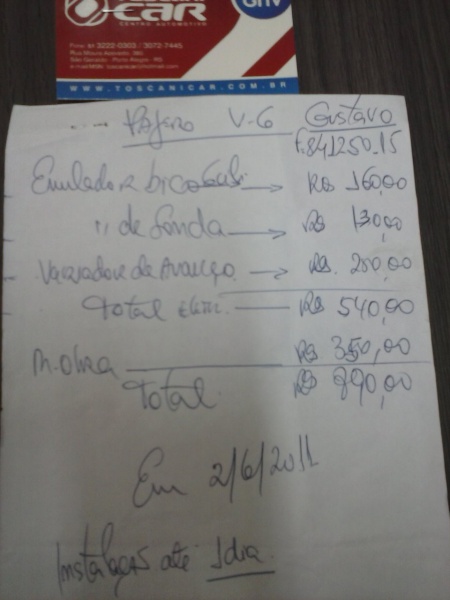 TOSCANI
CAR
CENTRO AUTOMOTIVO
GNV
Fone: 51 3222-0303 / 3072-7445
São Geraldo Porto Alegre RS
WWW.TOSCANICAR.COM.BR
Pajero V-6 Gustavo
F.841250.15
Emulador bico R$ 160,00
" de Sonda R$ 130,00
Variador de Avanço R$ 250,00
Total Eletr. R$ 540,00
M. Obra R$ 350,00
Total R$ 890,00
Em 2/6/2011
Instalação até 1 dia.